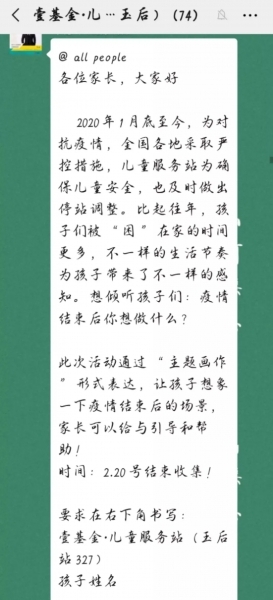 壹基金·儿…玉后）（74）
@ all people
各位家长，大家好
2020年1月底至今，为对
抗疫情，全国各地采取严
控措施，儿童服务站为确
保儿童安全，也及时做出
停站调整。比起往年，孩
子们被“困”在家的时间
更多，不一样的生活节奏
为孩子带来了不一样的感
知。想倾听孩子们：疫情
结束后你想做什么？
此次活动通过“主题画作
”形式表达，让孩子想象
一下疫情结束后的场景，
家长可以给与引导和帮
助！
时间：2.20号结束收集！
要求在右下角书写：
壹基金·儿童服务站（玉后
站327）
孩子姓名